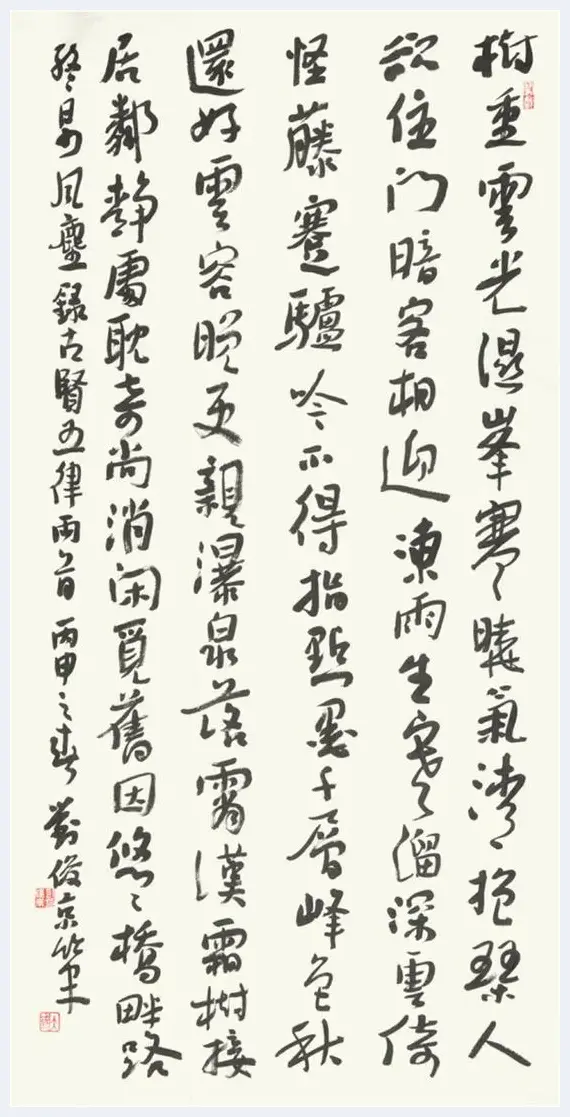 樹重雲光濕峯寒曉氣清抱琴人
欲住門暗客相迎凍雨生寒溜深雲倚
怪藤蹇驢吟不得指點墨千層峰色秋
還好雲容晚更親瀑泉落霄漢霜樹接
居鄰靜處耽奇尚消閑覓舊因悠〻橋畔路
終是少風塵 錄古賢五律兩首 丙申之春 劉俊京筆